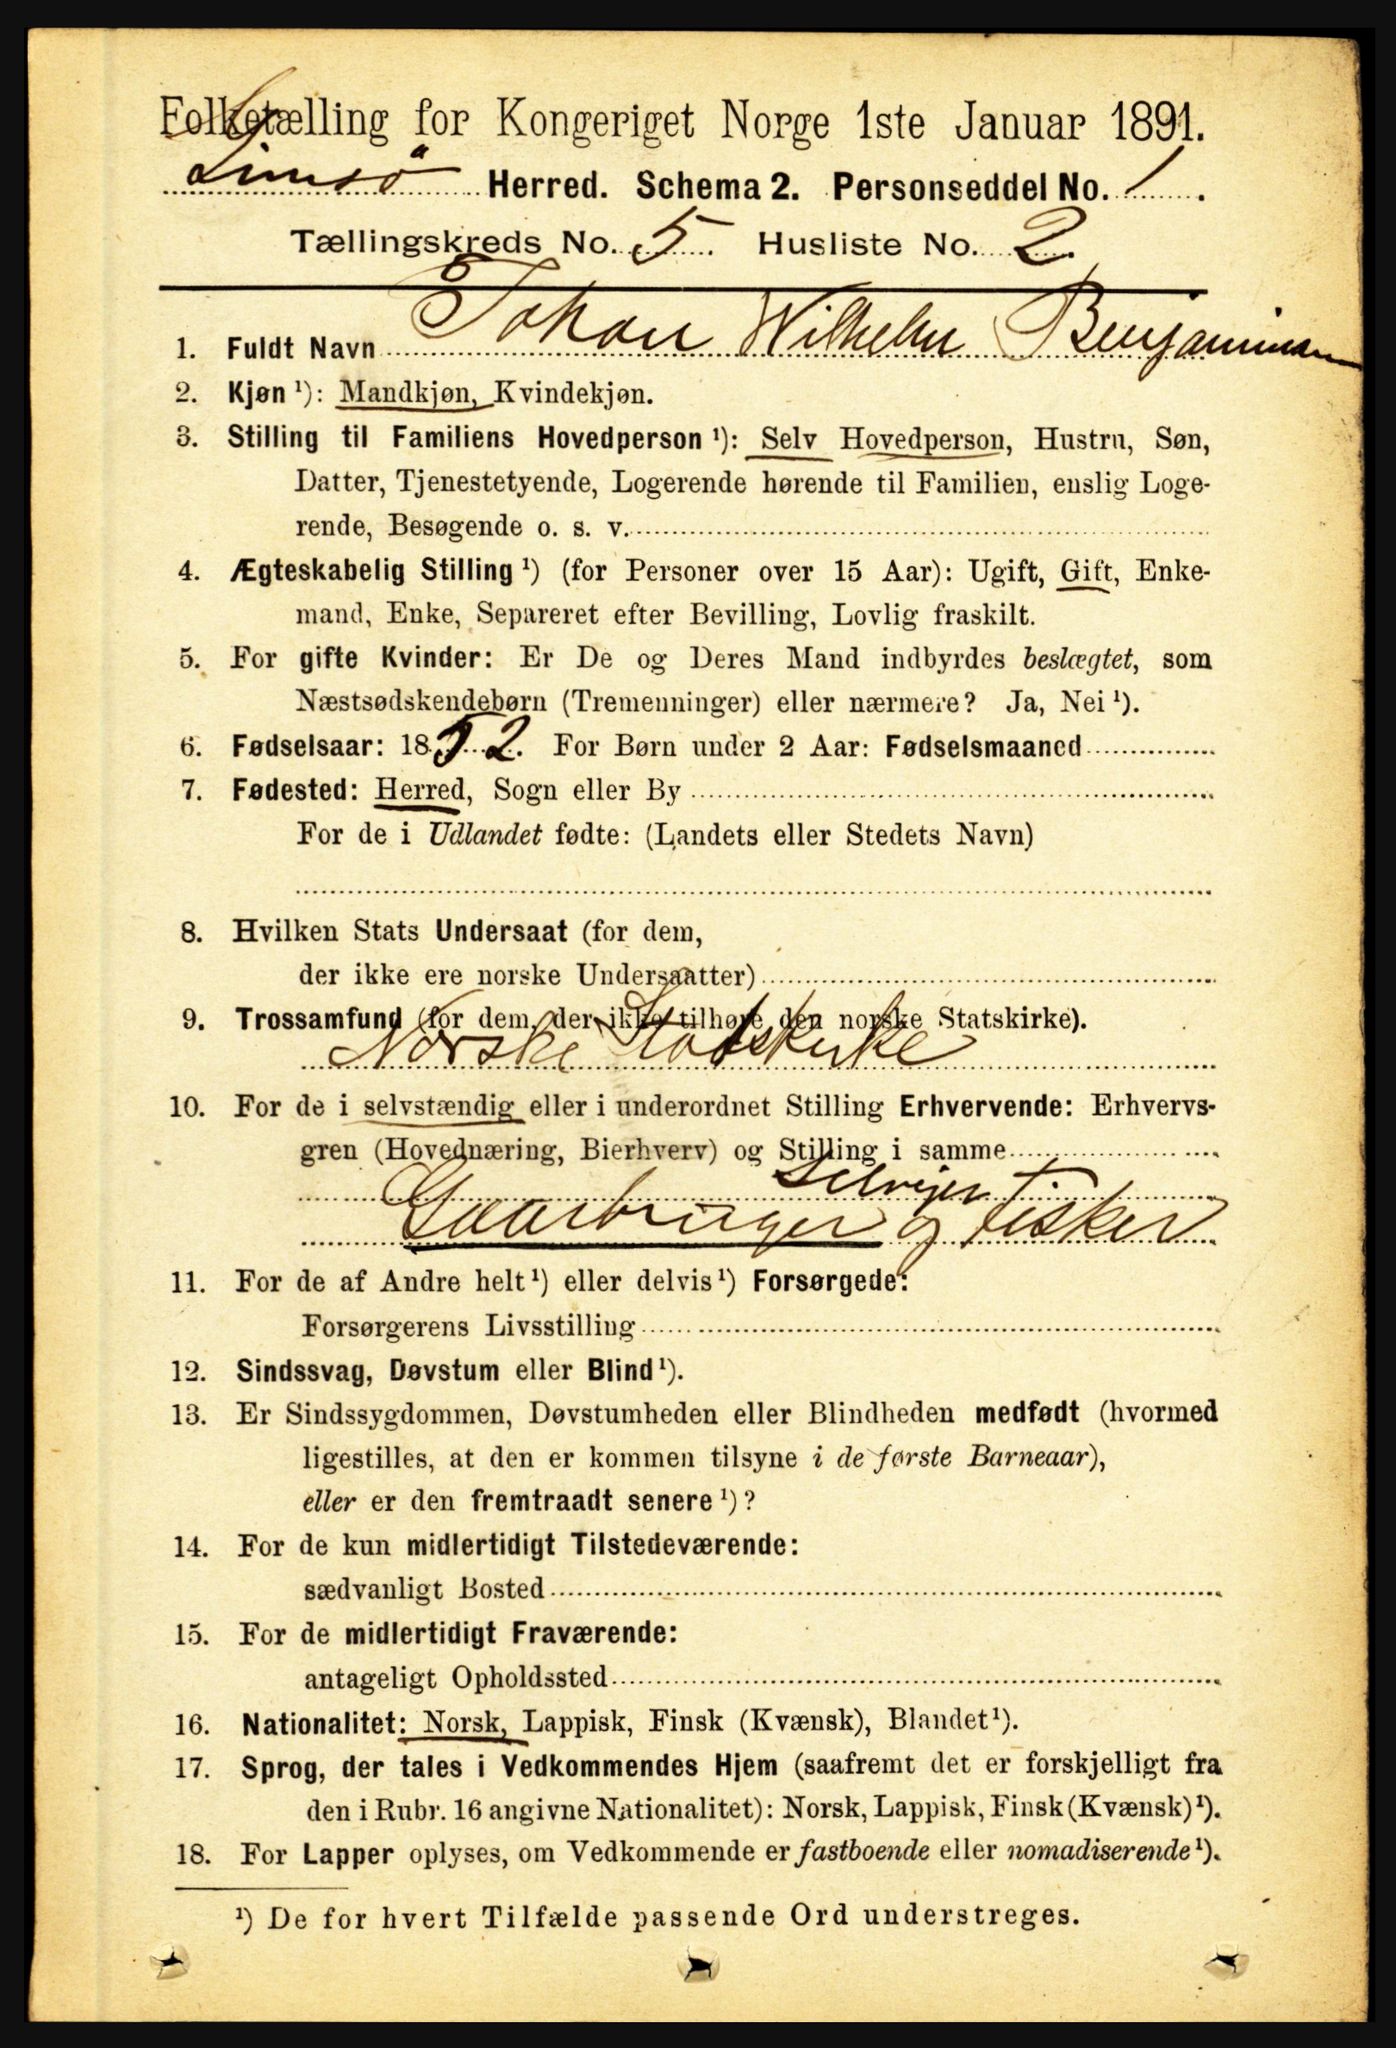 Folketælling for Kongeriget Norge 1ste Januar 1891.
Herred. Schema 2. Personseddel No. 1.
Tællingskreds No. 5. Husliste No. 2.
1. Fuldt Navn Johan Wilhelm Benjaminsen
2. Kjøn ¹): Mandkjøn, Kvindekjøn.
3. Stilling til Familiens Hovedperson ¹): Selv Hovedperson, Hustru, Søn,
Datter, Tjenestetyende, Logerende hørende til Familien, enslig Loge-
rende, Besøgende o. s. v.
4. Ægteskabelig Stilling ¹) (for Personer over 15 Aar): Ugift, Gift, Enke-
mand, Enke, Separeret efter Bevilling, Lovlig fraskilt.
5. For gifte Kvinder: Er De og Deres Mand indbyrdes beslægtet, som
Næstsødskendebørn (Tremenninger) eller nærmere? Ja, Nei ¹).
6. Fødselsaar: 1852. For Børn under 2 Aar: Fødselsmaaned
7. Fødested: Herred, Sogn eller By
For de i Udlandet fødte: (Landets eller Stedets Navn)
8. Hvilken Stats Undersaat (for dem,
der ikke ere norske Undersaatter)
9. Trossamfund (for dem, der ikke tilhøre den norske Statskirke).
Norske Statskirke
10. For de i selvstændig eller i underordnet Stilling Erhvervende: Erhvervs-
gren (Hovednæring, Bierhverv) og Stilling i samme
Selvejer
Gaarbruger og Fisker
11. For de af Andre helt ¹) eller delvis ¹) Forsørgede:
Forsørgerens Livsstilling
12. Sindssvag, Døvstum eller Blind ¹).
13. Er Sindssygdommen, Døvstumheden eller Blindheden medfødt (hvormed
ligestilles, at den er kommen tilsyne i de første Barneaar),
eller er den fremtraadt senere ¹)?
14. For de kun midlertidigt Tilstedeværende:
sædvanligt Bosted
15. For de midlertidigt Fraværende:
antageligt Opholdssted
16. Nationalitet: Norsk, Lappisk, Finsk (Kvænsk), Blandet ¹).
17. Sprog, der tales i Vedkommendes Hjem (saafremt det er forskjelligt fra
den i Rubr. 16 angivne Nationalitet): Norsk, Lappisk, Finsk (Kvænsk) ¹).
18. For Lapper oplyses, om Vedkommende er fastboende eller nomadiserende ¹).
¹) De for hvert Tilfælde passende Ord understreges.